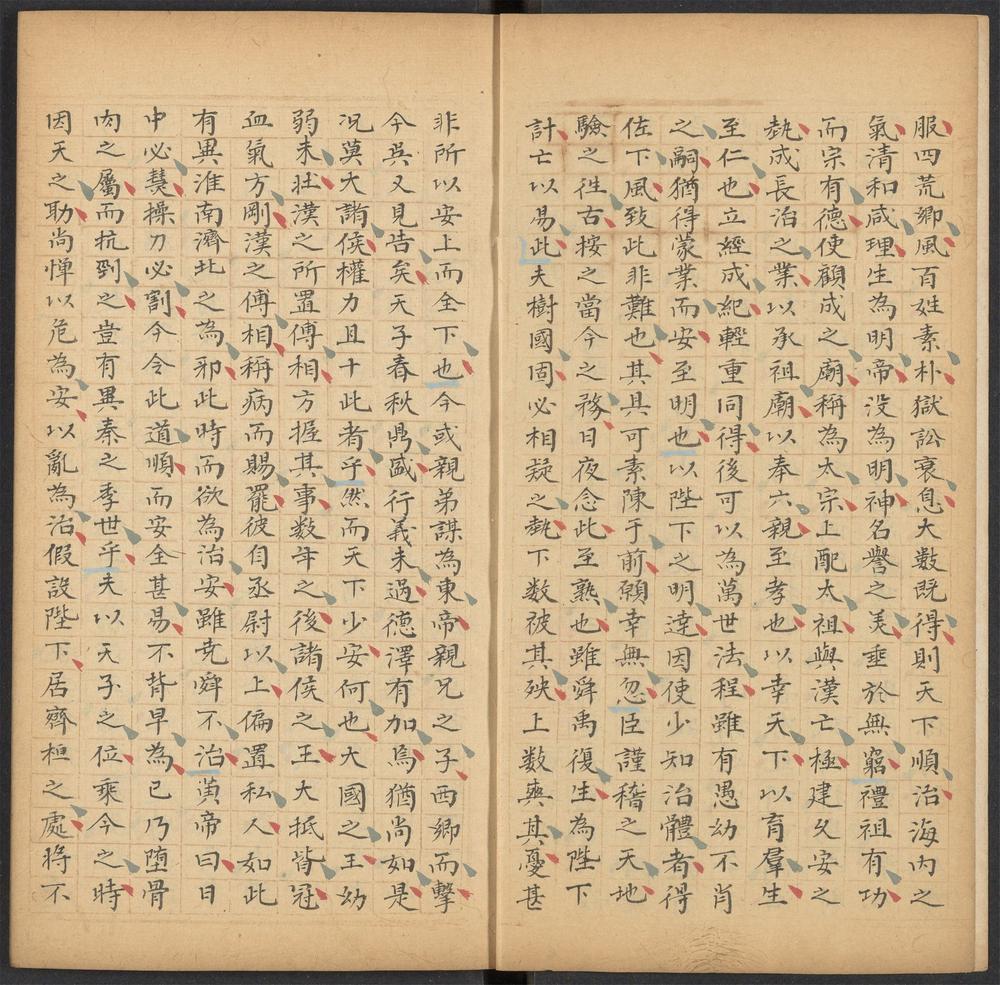 服四荒鄉風百姓素朴獄訟衰息大數既得則天下順治海內之
氣清和咸理生為明帝没為明神名譽之美垂於無窮禮祖有功
而宗有德使顧成之廟稱為太宗上配太祖與漢亡極建久安之
埶成長治之業以承祖廟以奉六親至孝也以幸天下以育羣生
至仁也立經成紀輕重同得後可以為萬世法程雖有愚幼不肖
之嗣猶得蒙業而安至明也以陛下之明達因使少知治體者得
佐下風致此非難也其具可素陳于前願幸無忽臣謹稽之天地
驗之徃古按之當今之務日夜念此至熟也雖舜禹復生為陛下
計亡以易此夫樹國固必相疑之埶下数被其殃上数爽其憂甚
非所以安上而全下也今或親弟謀為東帝親兄之子西鄉而擊
今吳又見告矣天子春秋鼎盛行義未過德澤有加焉猶尚如是
况莫大諸侯權力且十此者乎然而天下少安何也大國之王幼
弱未壯漢之所置傅相方握其事数年之後諸侯之王大抵皆冠
血氣方剛漢之傅相稱病而賜罷彼自丞尉以上偏置私人如此
有異淮南濟北之為邪此時而欲為治安雖尭舜不治黃帝曰日
中必㷉操刀必割今令此道順而安全甚易不肯早為已乃堕骨
肉之屬而抗剄之豈有異秦之季世乎夫以天子之位乘今之時
因天之助尚憚以危為安以亂為治假設陛下居齊桓之處將不